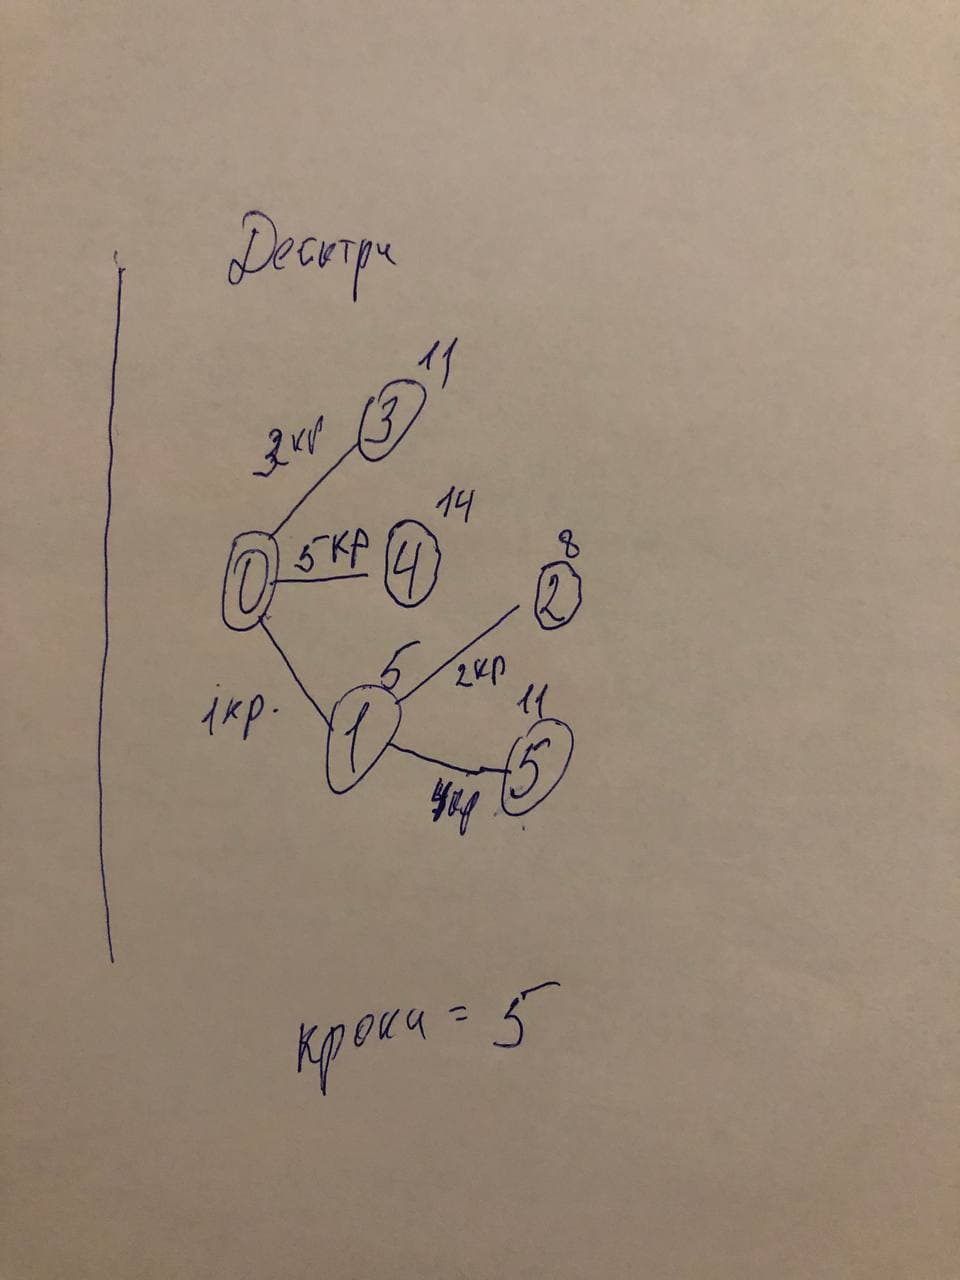 Дейктри
11
3кр
3
14
5 кр
4
0
8
2
5
2кр
1кр.
11
1
5
4кр
кроки = 5